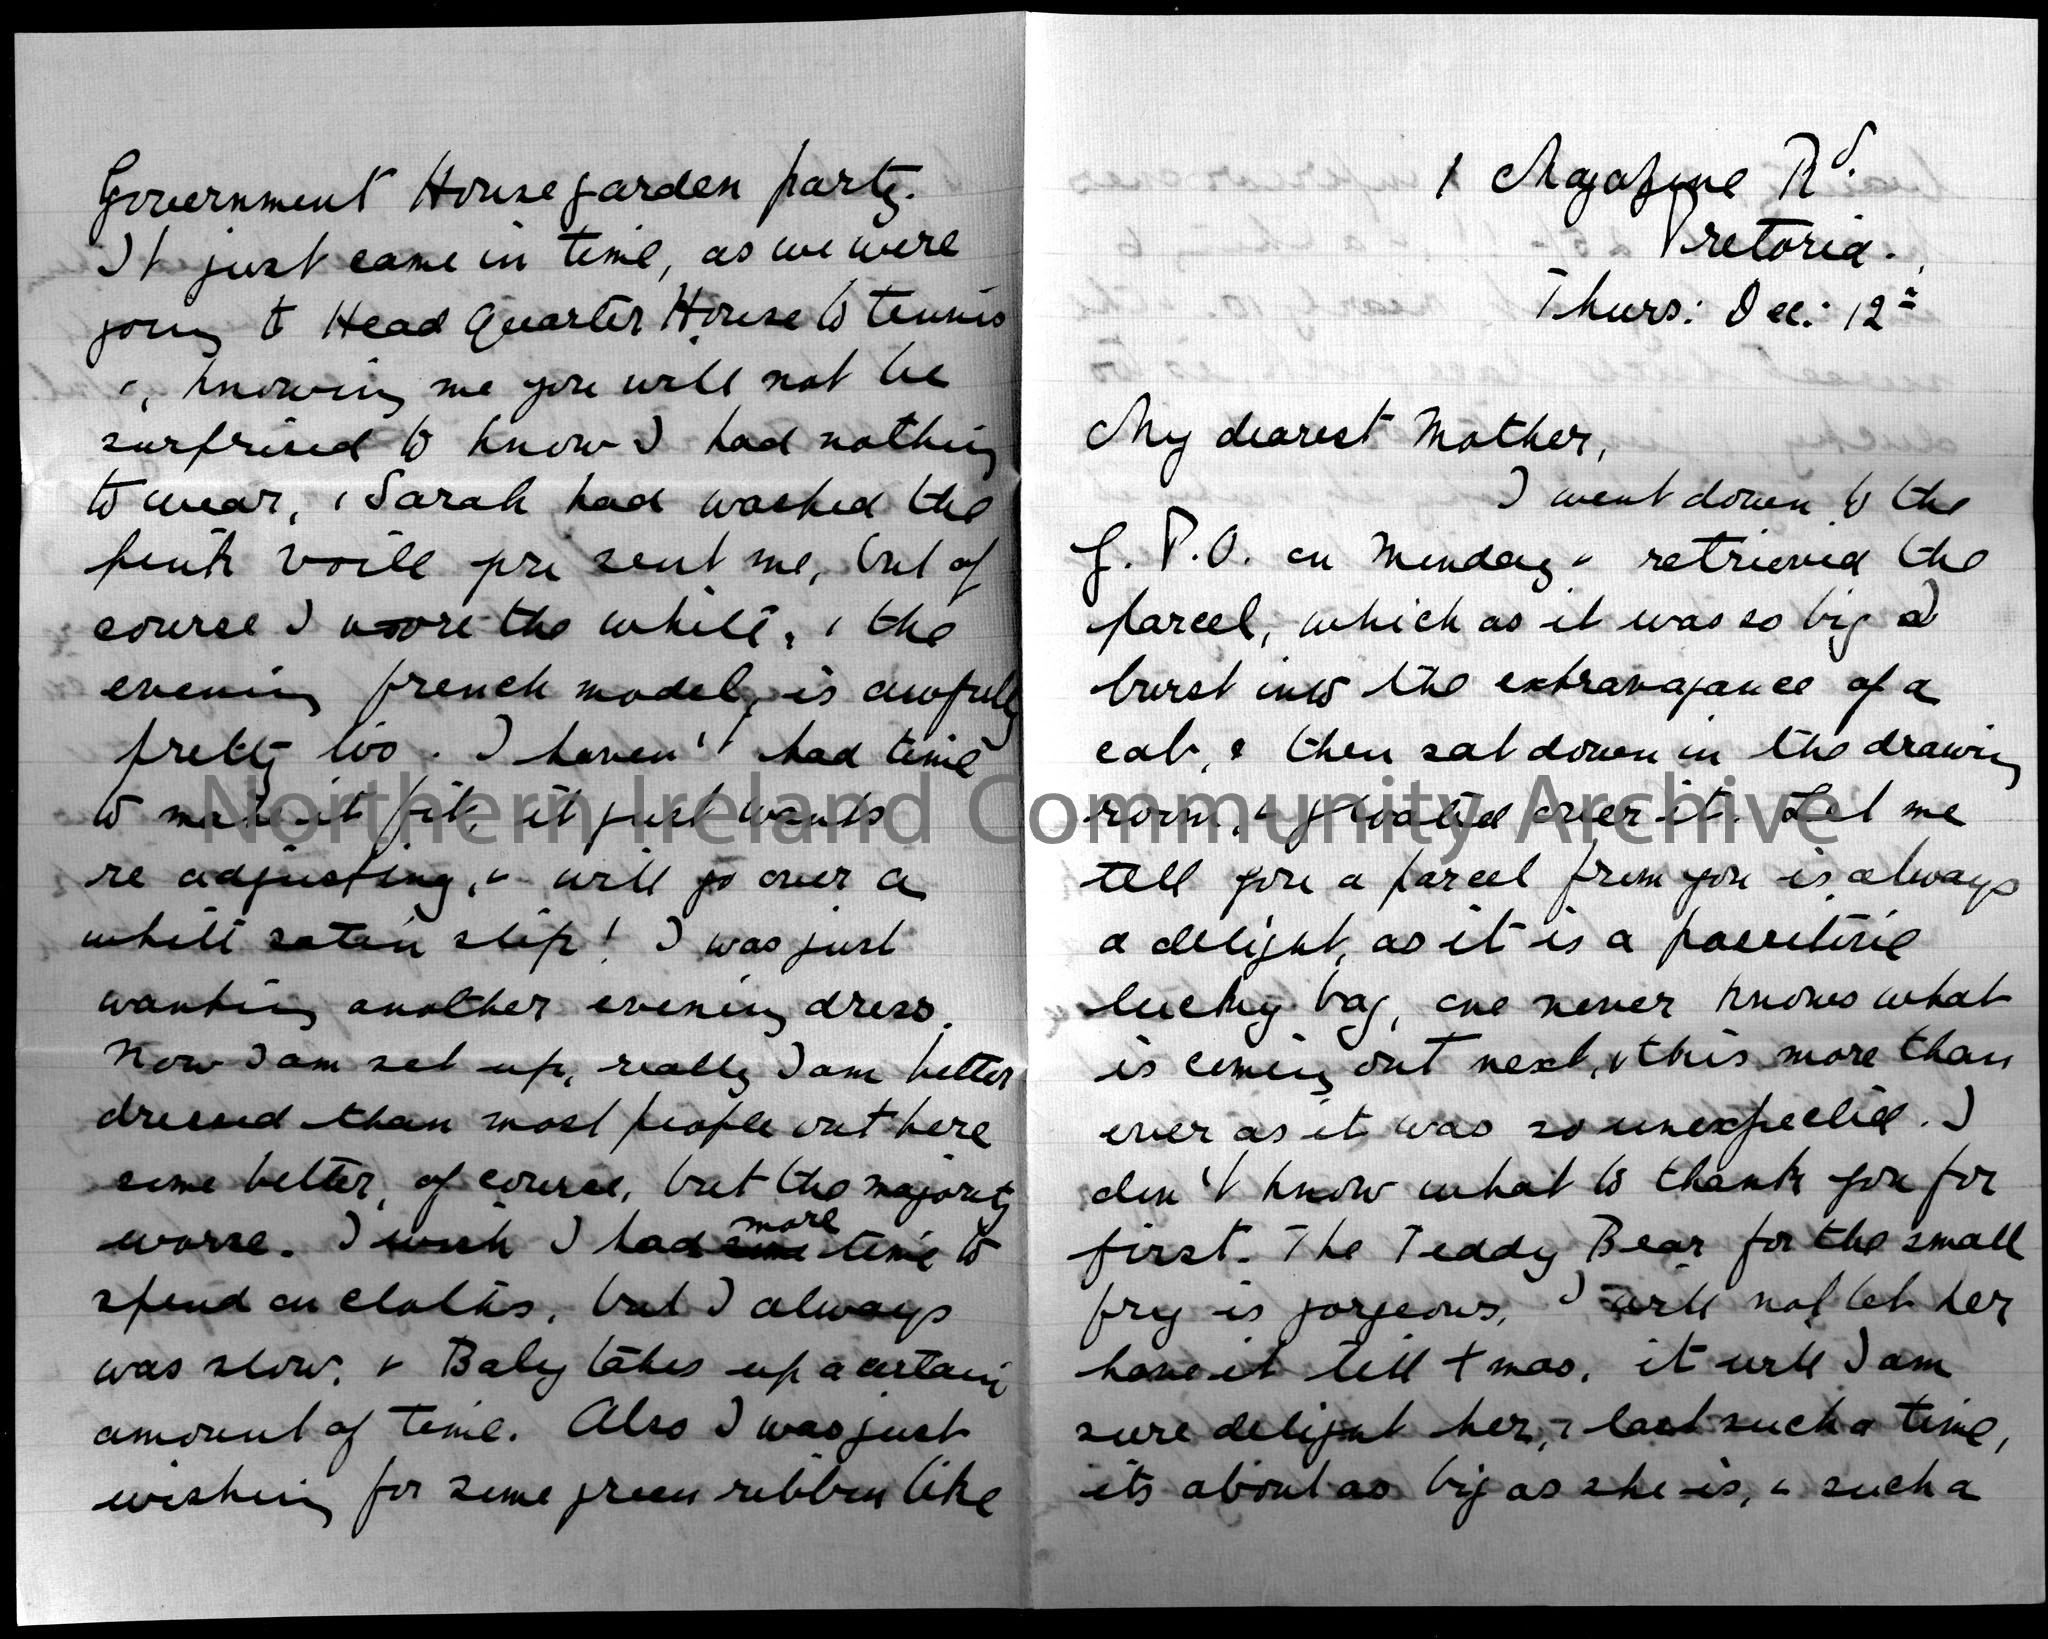 1 Magazine Rd.
Pretoria.
Thurs: Dec: 12th
My dearest Mother,
I went down to the
G.P.O. on Monday & retrieved the
parcel, which as it was so big I
burst into the extravagance of a
cab, & then sat down in the drawing
room, & gloated over it. Let me
tell you a parcel from you is always
a delight, as it is a
lucky bag, one never knows what
is coming out next, & this more than
ever as it was so unexpected. I
don't know what to thank you for
first. The Teddy Bear for the small
fry is gorgeous, I will not let her
have it till Xmas, it will I am
sure delight her, & last such a time,
its about as big as she is, & such a
Government House garden party.
It just came in time, as we were
going to Head Quarter House to tennis
&, knowing me you will not be
surprised to know I had nothing
to wear, & Sarah had washed the
pink voile you sent me, but of
course I wore the white, & the
evening french model, is awfully
pretty too. I haven't had time
to make it fit, it just wants
re adjusting, & will go over a
white satin slip! I was just
wanting another evening dress.
Now I am set up, really I am better
dressed than most people out here
some better, of course, but the majority
worse. I wish I had some more time to
spend on cloths, but I always
was slow, & Baby takes up a certain
amount of time. Also I was just
wishing for some green ribbon like
Northern Ireland Community Archive